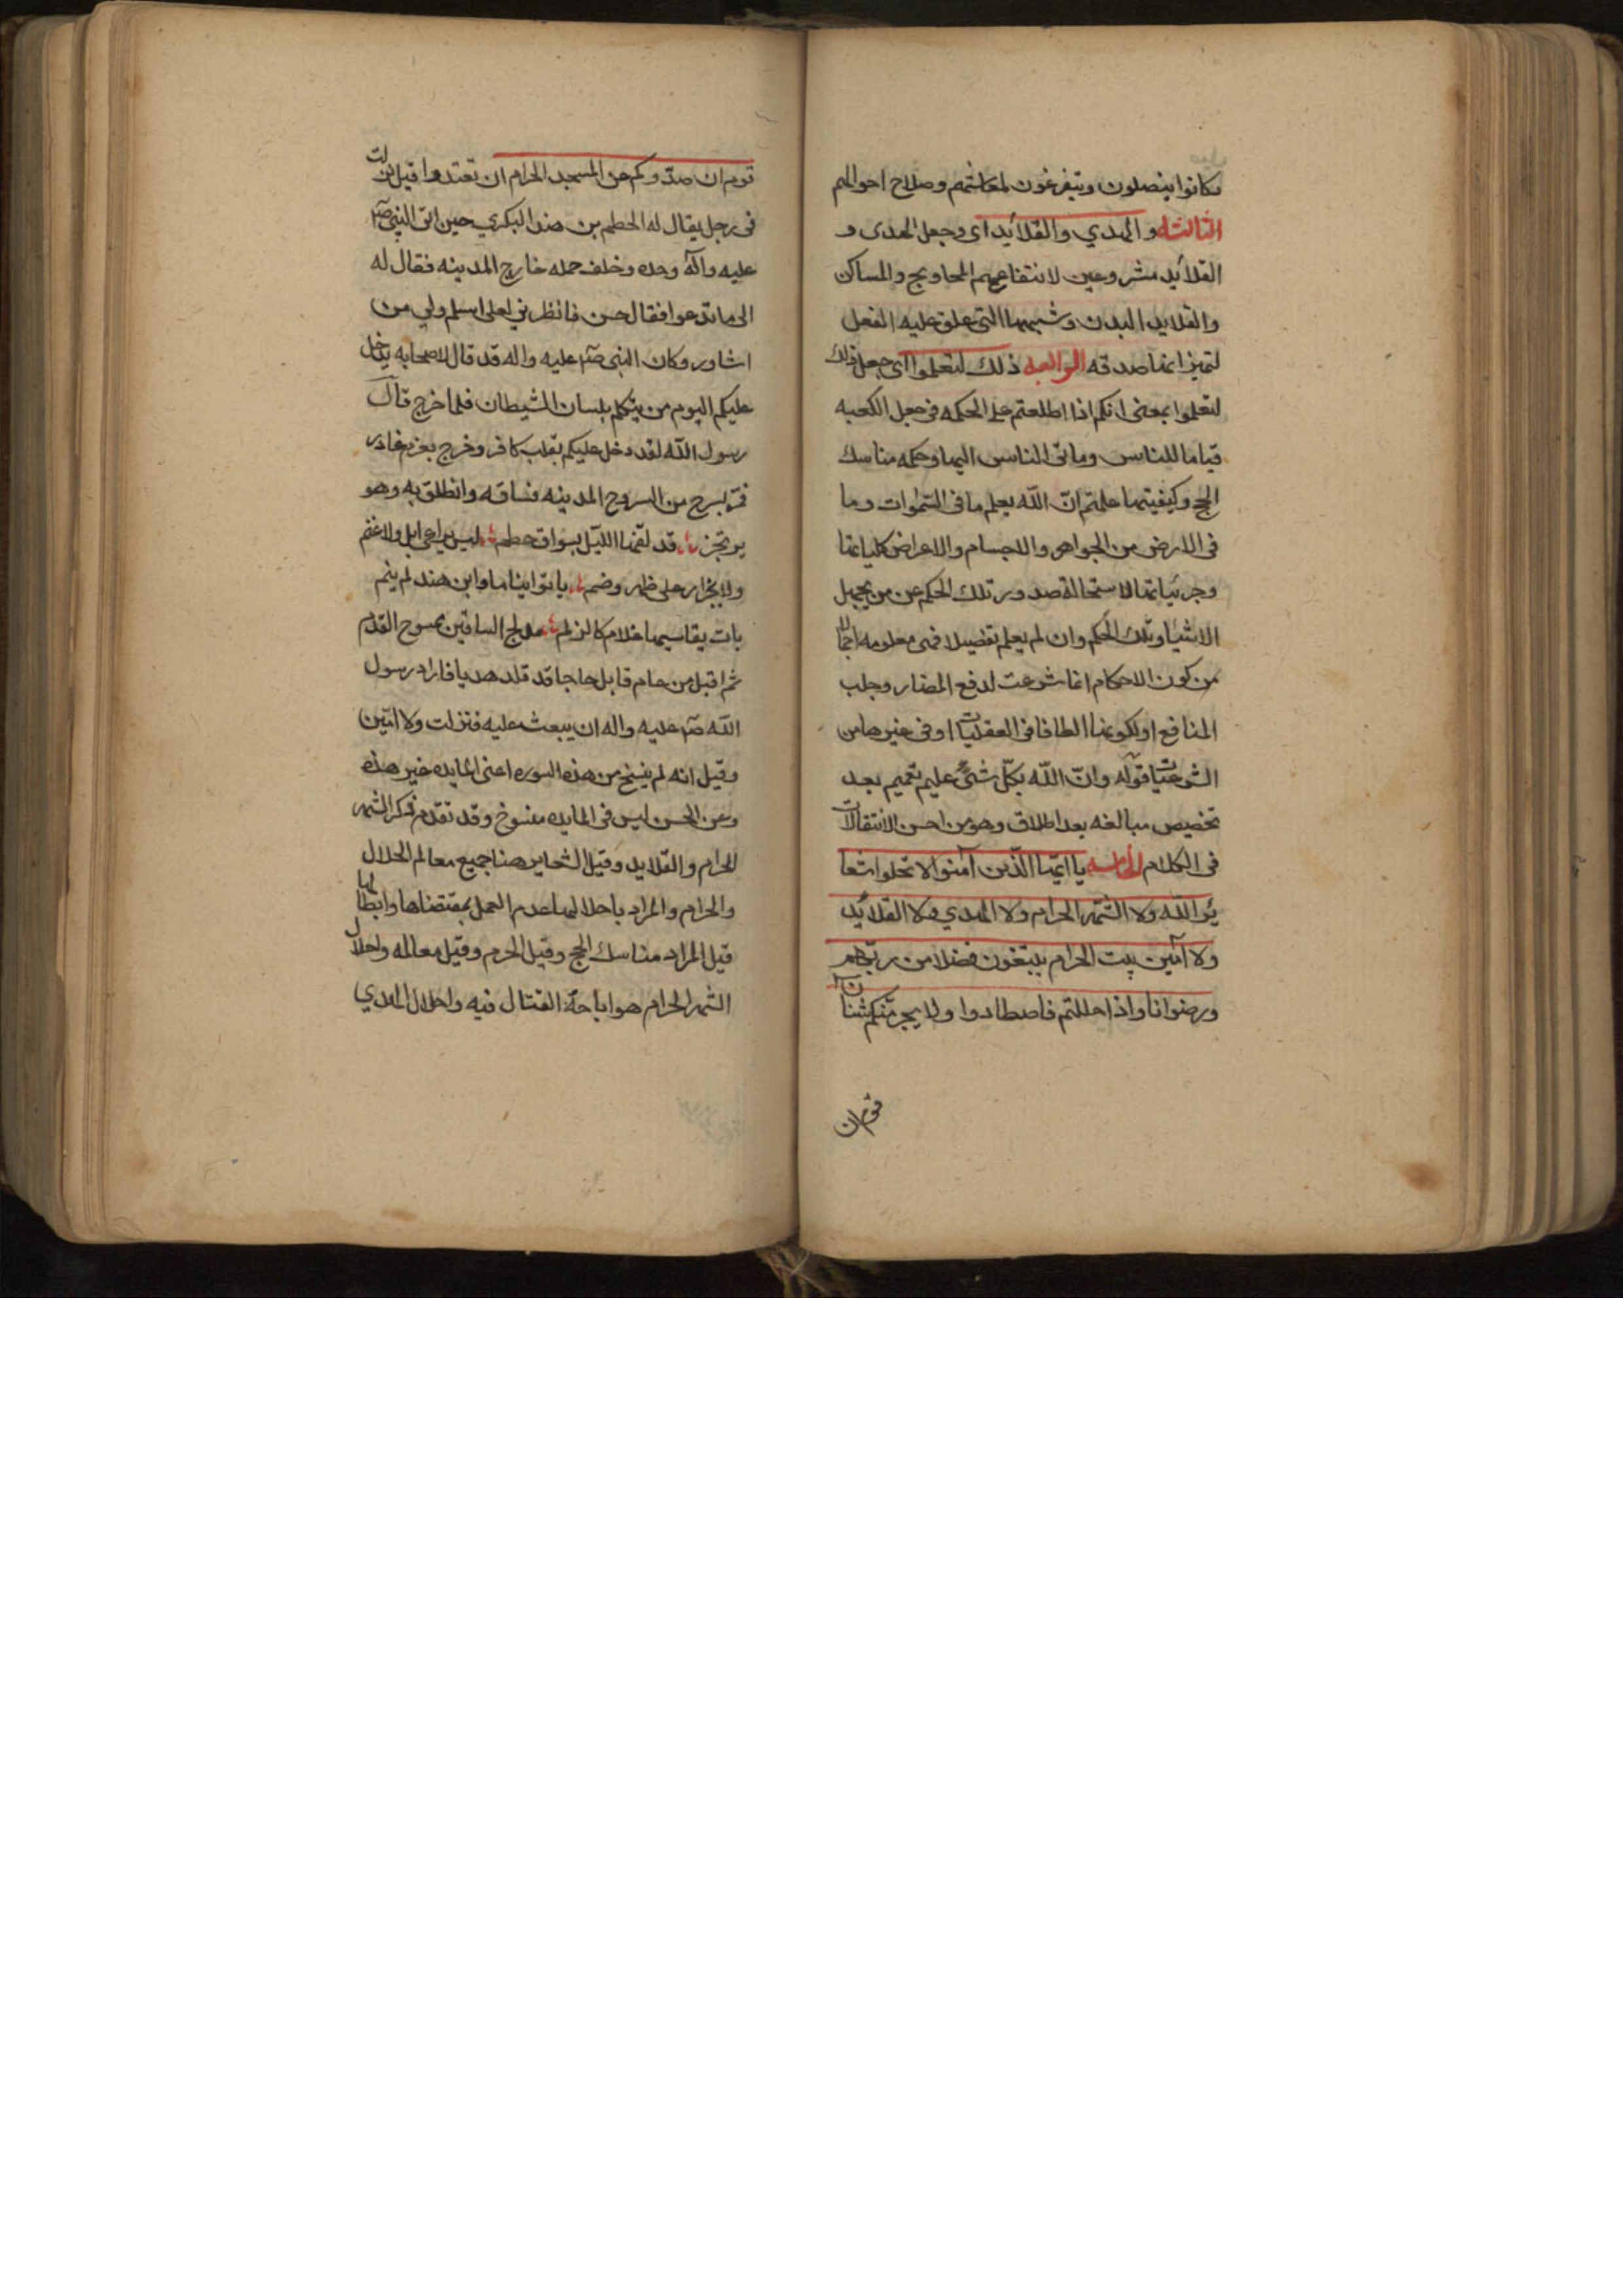 فكانوا ينصلون ويتفرغون لمعايشهم وصلاح احوالهم
الثالثه والهدي والقلائد اى وجعل الهدى و
القلائد مشروعين لانتفاع المحاويج والمساكن
والقلايد البدن وشبهها التى علق عليه النعل
لتميز انها صدقه الرابعه ذلك لتعلموا اى جعل ذلك
لتعلموا بمعنى انكم اذا اطلعتم على الحكمه فى جعل الكعبه
قياما للناس وما تى الناس اليها وحكمه مناسك
الحج وكيفيتها علمتم انّ اللّه يعلم ما فى السّموات وما
فى الارض من الجواهر والاجسام والاعراض كلياتها
وجزئياتها لاستحالة صدور تلك الحكم عن من يجهل
الاشيا وتلك الحكم وان لم يعلم تفضيلا فهى معلومه اجمالا
من كون الاحكام انما شرعت لدفع المضار وجلب
المنافع او لكونها الطافا فى العقليات او فى غيرها من
الشرعيّات قوله وانّ اللّه بكلّ شئٍ عليم تعميم بعد
تخصيص مبالغه بعد اطلاق وهو من احسن الانتقالات
فى الكلام الخامسه يا ايّها الّذين آمنوا لا تحلوا شعا
ئر اللّه ولا الشّهر الحرام ولا الهدي ولا القلائد
ولا آمّين بيت الحرام يبتغون فضلا من ربّهم
ورضوانا واذا حللتم فاصطادوا ولا يجرمنّكم شنآن
قوم ان
قوم ان صدّوكم عن المسجد الحرام ان تعتدوا قيل نزلت
فى رجل يقال له الحطم بن هند البكري حين اتى النبى صلم
عليه وآله وحده وخلف خيله خارج المدينه فقال له
الى ما تدعوا فقال حسن فانظرني لعلى اسلم ولي من
اشاور وكان النبى صلم عليه واله قد قال لاصحابه يدخل
عليكم اليوم من يتكلم بلسان الشيطان فلما خرج قال
رسول اللّه لقد دخل عليكم بقلب كافر وخرج بعزم غادر
فمرّ بسرح من السروح المدينه فساقه وانطلق به وهو
يرتجز قد لفّها اللّيل بسواق حطم ليس براعى ابل ولا غنم
ولا بجزار على ظهر وضم باتوا نياما وابن هند لم ينم
بات يقاسيها غلام كالزلم خدلج الساقين ممسوح القدم
ثم اقبل من عام قابل حاجا قد قلد هديا فاراد رسول
اللّه صلم عليه واله ان يبعث عليه فنزلت ولا امّين
وقيل انه لم ينسخ من هذه السوره اعنى المايده غير هذه
وعن الحسن ليس فى المايده منسوخ وقد تقدم ذكر الشهر
الحرام والقلايد وقيل الشعاير هنا جميع معالم الحلال
والحرام والمراد باحلالها عدم العمل بمقتضاها وابطالها
قيل المراد مناسك الحج وقيل الحرم وقيل معالمه واحلال
الشهر الحرام هو اباحة القتال فيه واحلال الهدي